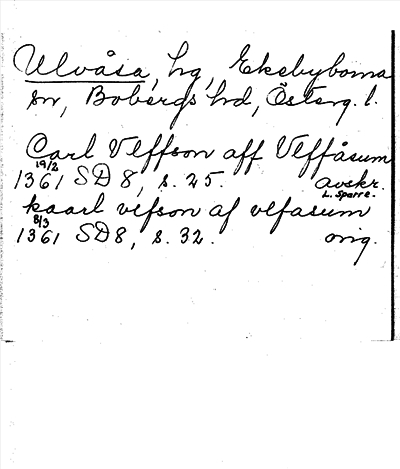 Ulvåsa, hg, Ekebyborna
sn, Bobergs hd, Österg. l.
Carl Vlffson aff Vlffåsum
19/2
1361 SD 8, s. 25. avskr.
L. Sparre.
kaarl vlfson af vlfasum
8/3
1361 SD 8, s. 32. orig.